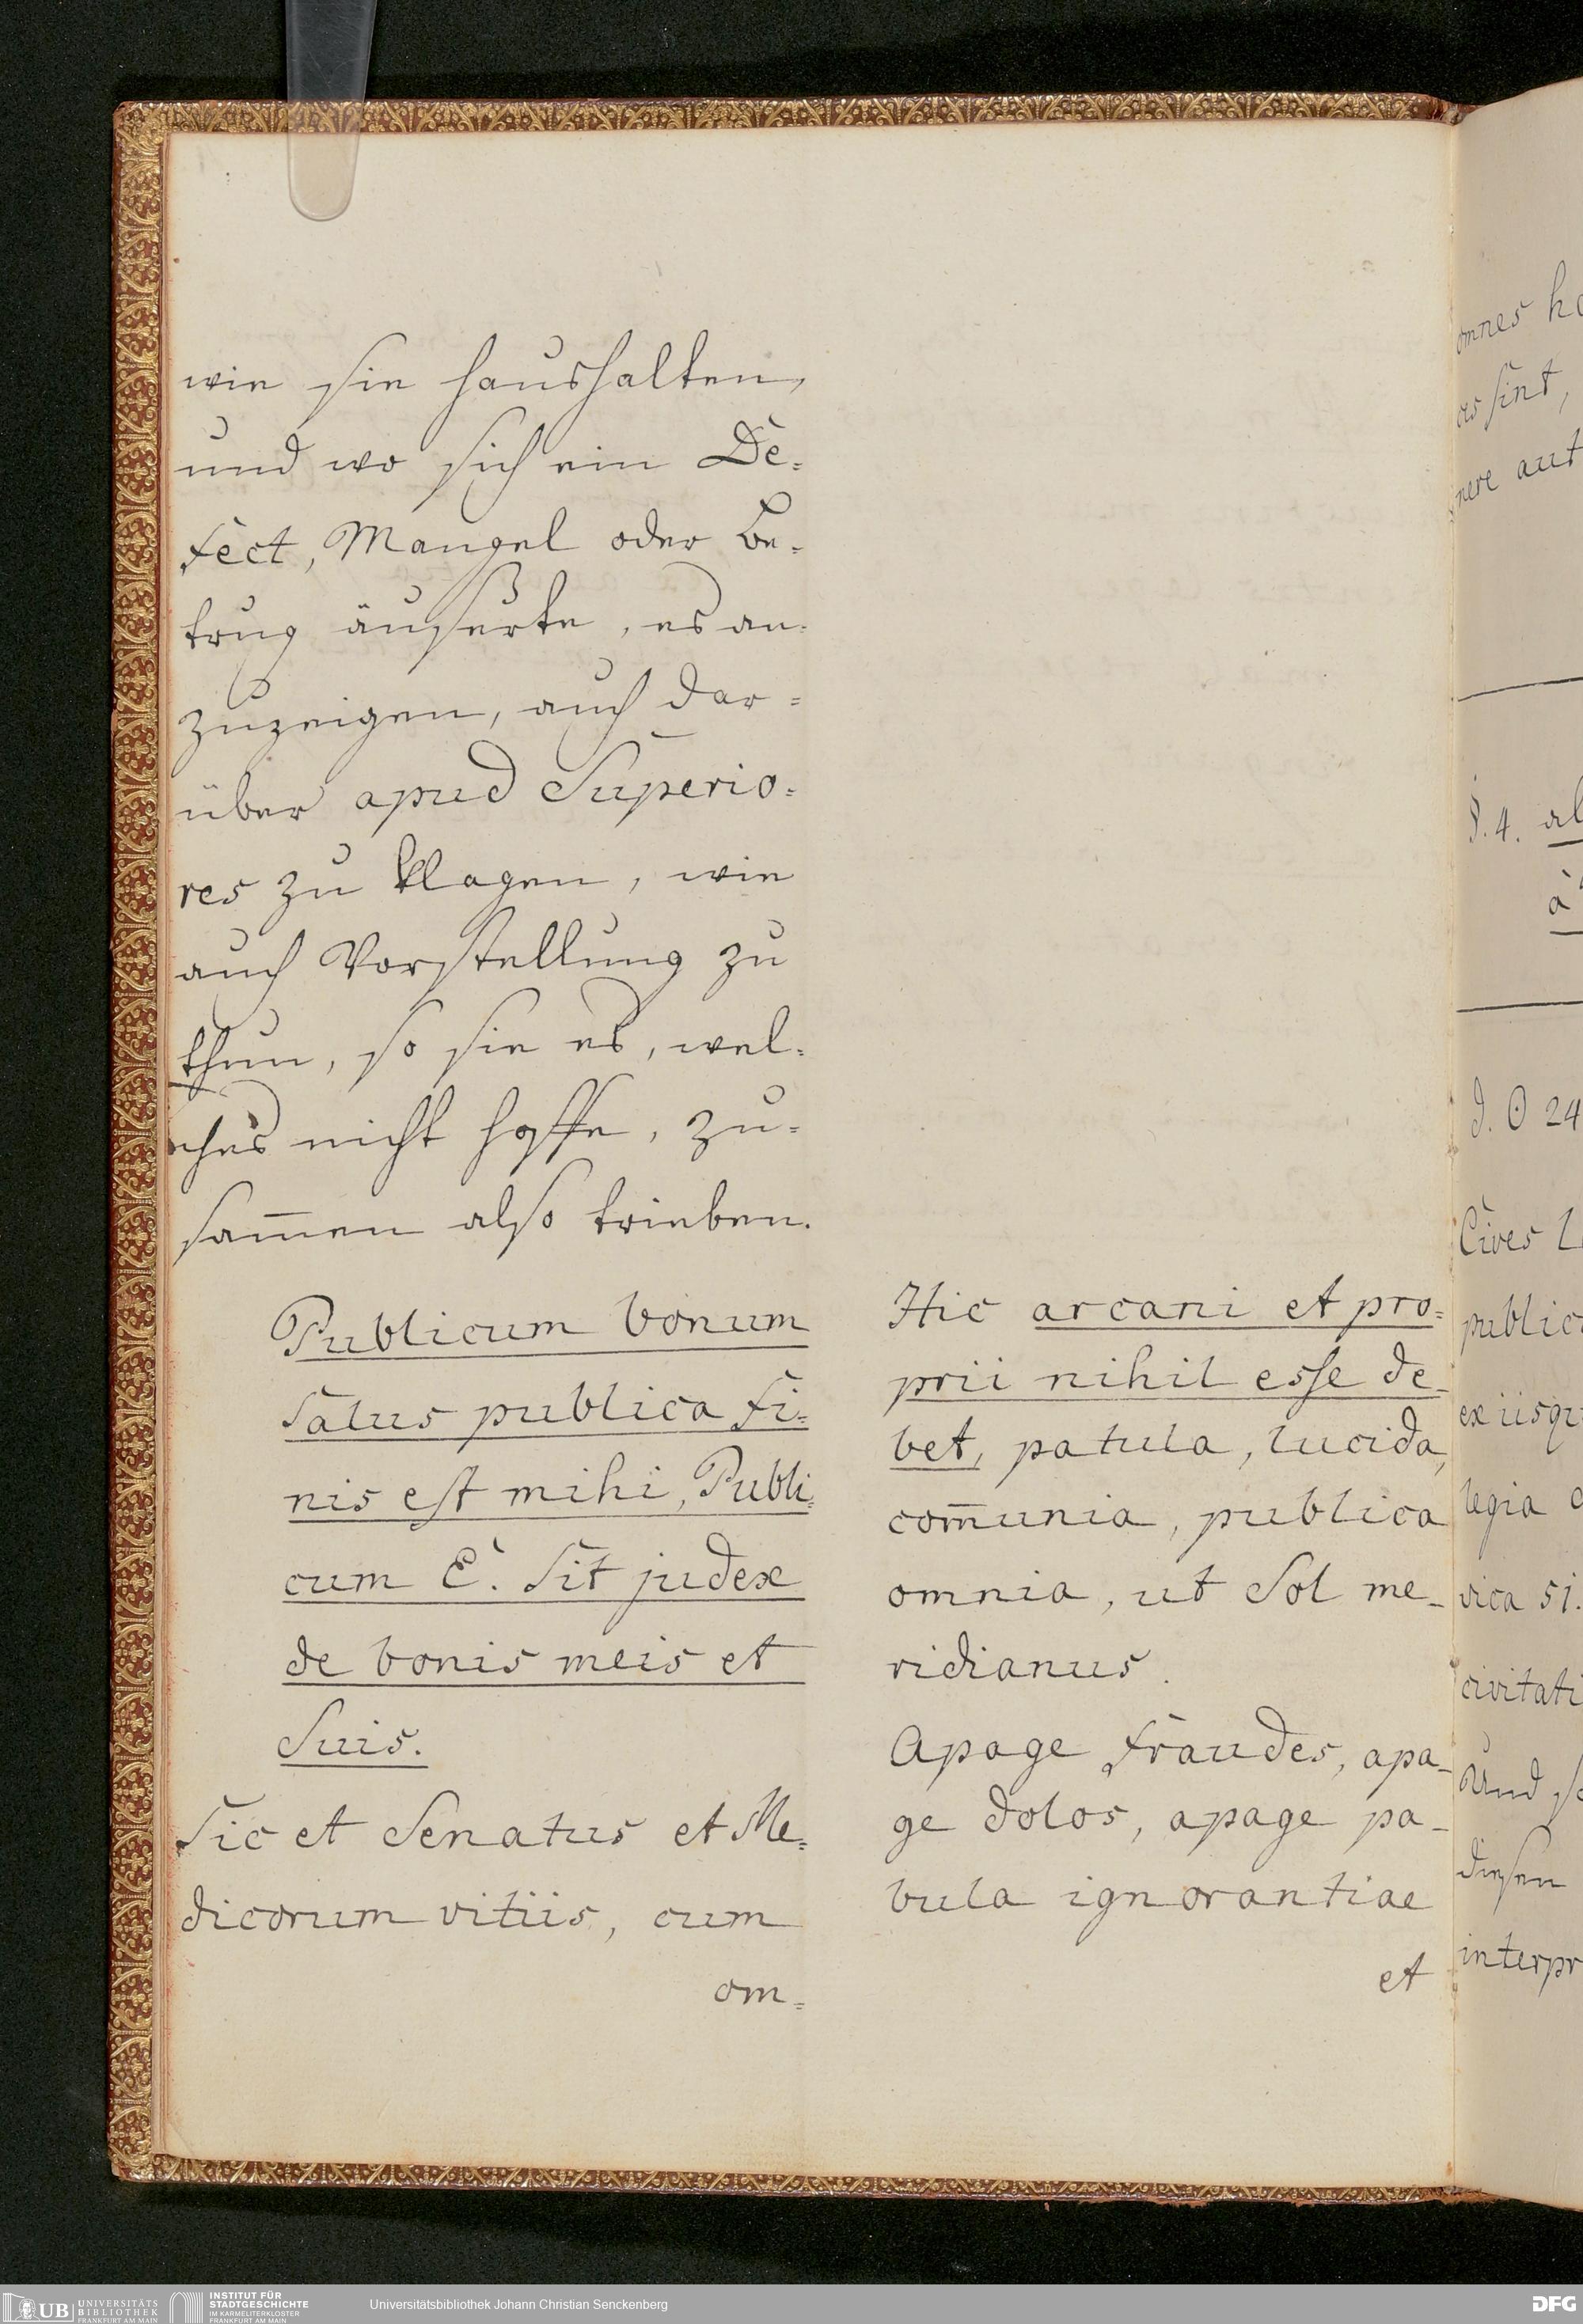 wie sie haushalten,
und wo sich ein De=
fect, Mangel oder Be=
trug äusserte, es an=
zuzeigen, auch dar=
über apud Superio=
res zu klagen, wie
auch Vorstellung zu
thun, so sie es, wel=
ches nicht hoffe, zu=
sam̅en also trieben.
Publicum bonum
salus publica fi=
nis est mihi, Publi=
cum E. sit judex
de bonis meis et
suis.
Sic et Senatus et Me=
dicorum vitiis, cum
om=
Hic arcani et pro=
prii nihil esse de-
bet, patula, lucida,
com̅unia, publica
omnia, ut Sol me-
ridianus.
Apage fraudes, apa-
ge dolos, apage pa-
bula ignorantiae
et
omnes
sint,
nere aut
§. 4.
à
d. ☉ 24
Cives
publica
ex iisqu
legia
vica 51.
civitati
Und
diesen
interpr
UB UNIVERSITÄTS
BIBLIOTHEK
FRANKFURT AM MAIN
INSTITUT FÜR
STADTGESCHICHTE
IM KARMELITERKLOSTER
FRANKFURT AM MAIN
Universitätsbibliothek Johann Christian Senckenberg
DFG